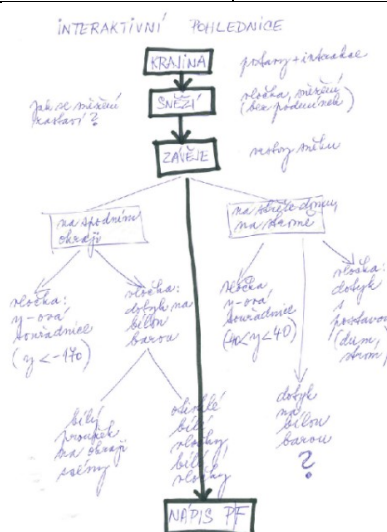 INTERAKTIVNÍ POHLEDNICE
KRAJINA
postavy + interakce
SNĚŽÍ
vločka, sněžení
(bez podmínek)
Jak se sněžení
zastaví?
ZÁVĚJE
na spodním
okraji
na střeše domu,
na stromě
vločka:
y-ová
souřadnice
(y < -170)
vločka:
dotyk na
bílou
barvu
vločka,
y-ová
souřadnice
vločka:
dotyk
s
postavou
(dům,
strom,
bílý
proužek
na okraji
scény
bílé
vločky,
bílé
vločky
dotyk
na
bílou
barvu
?
NÁPIS PF